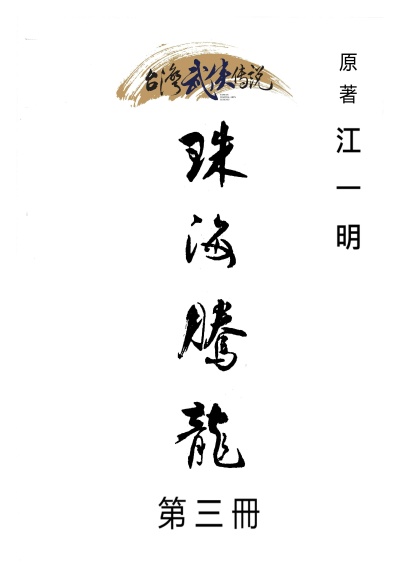 台灣武侠传说
原著 江一明
珠海騰龍
第三冊